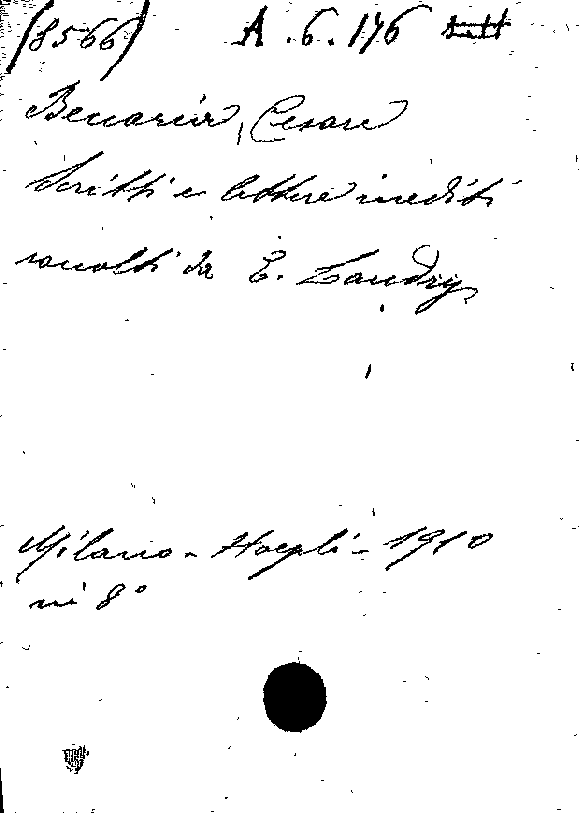 (8566) A.6.176
Beccaria, Cesare
Scritti e lettere inediti
raccolti da E. Landry
Milano - Hoepli - 1910
in 8°